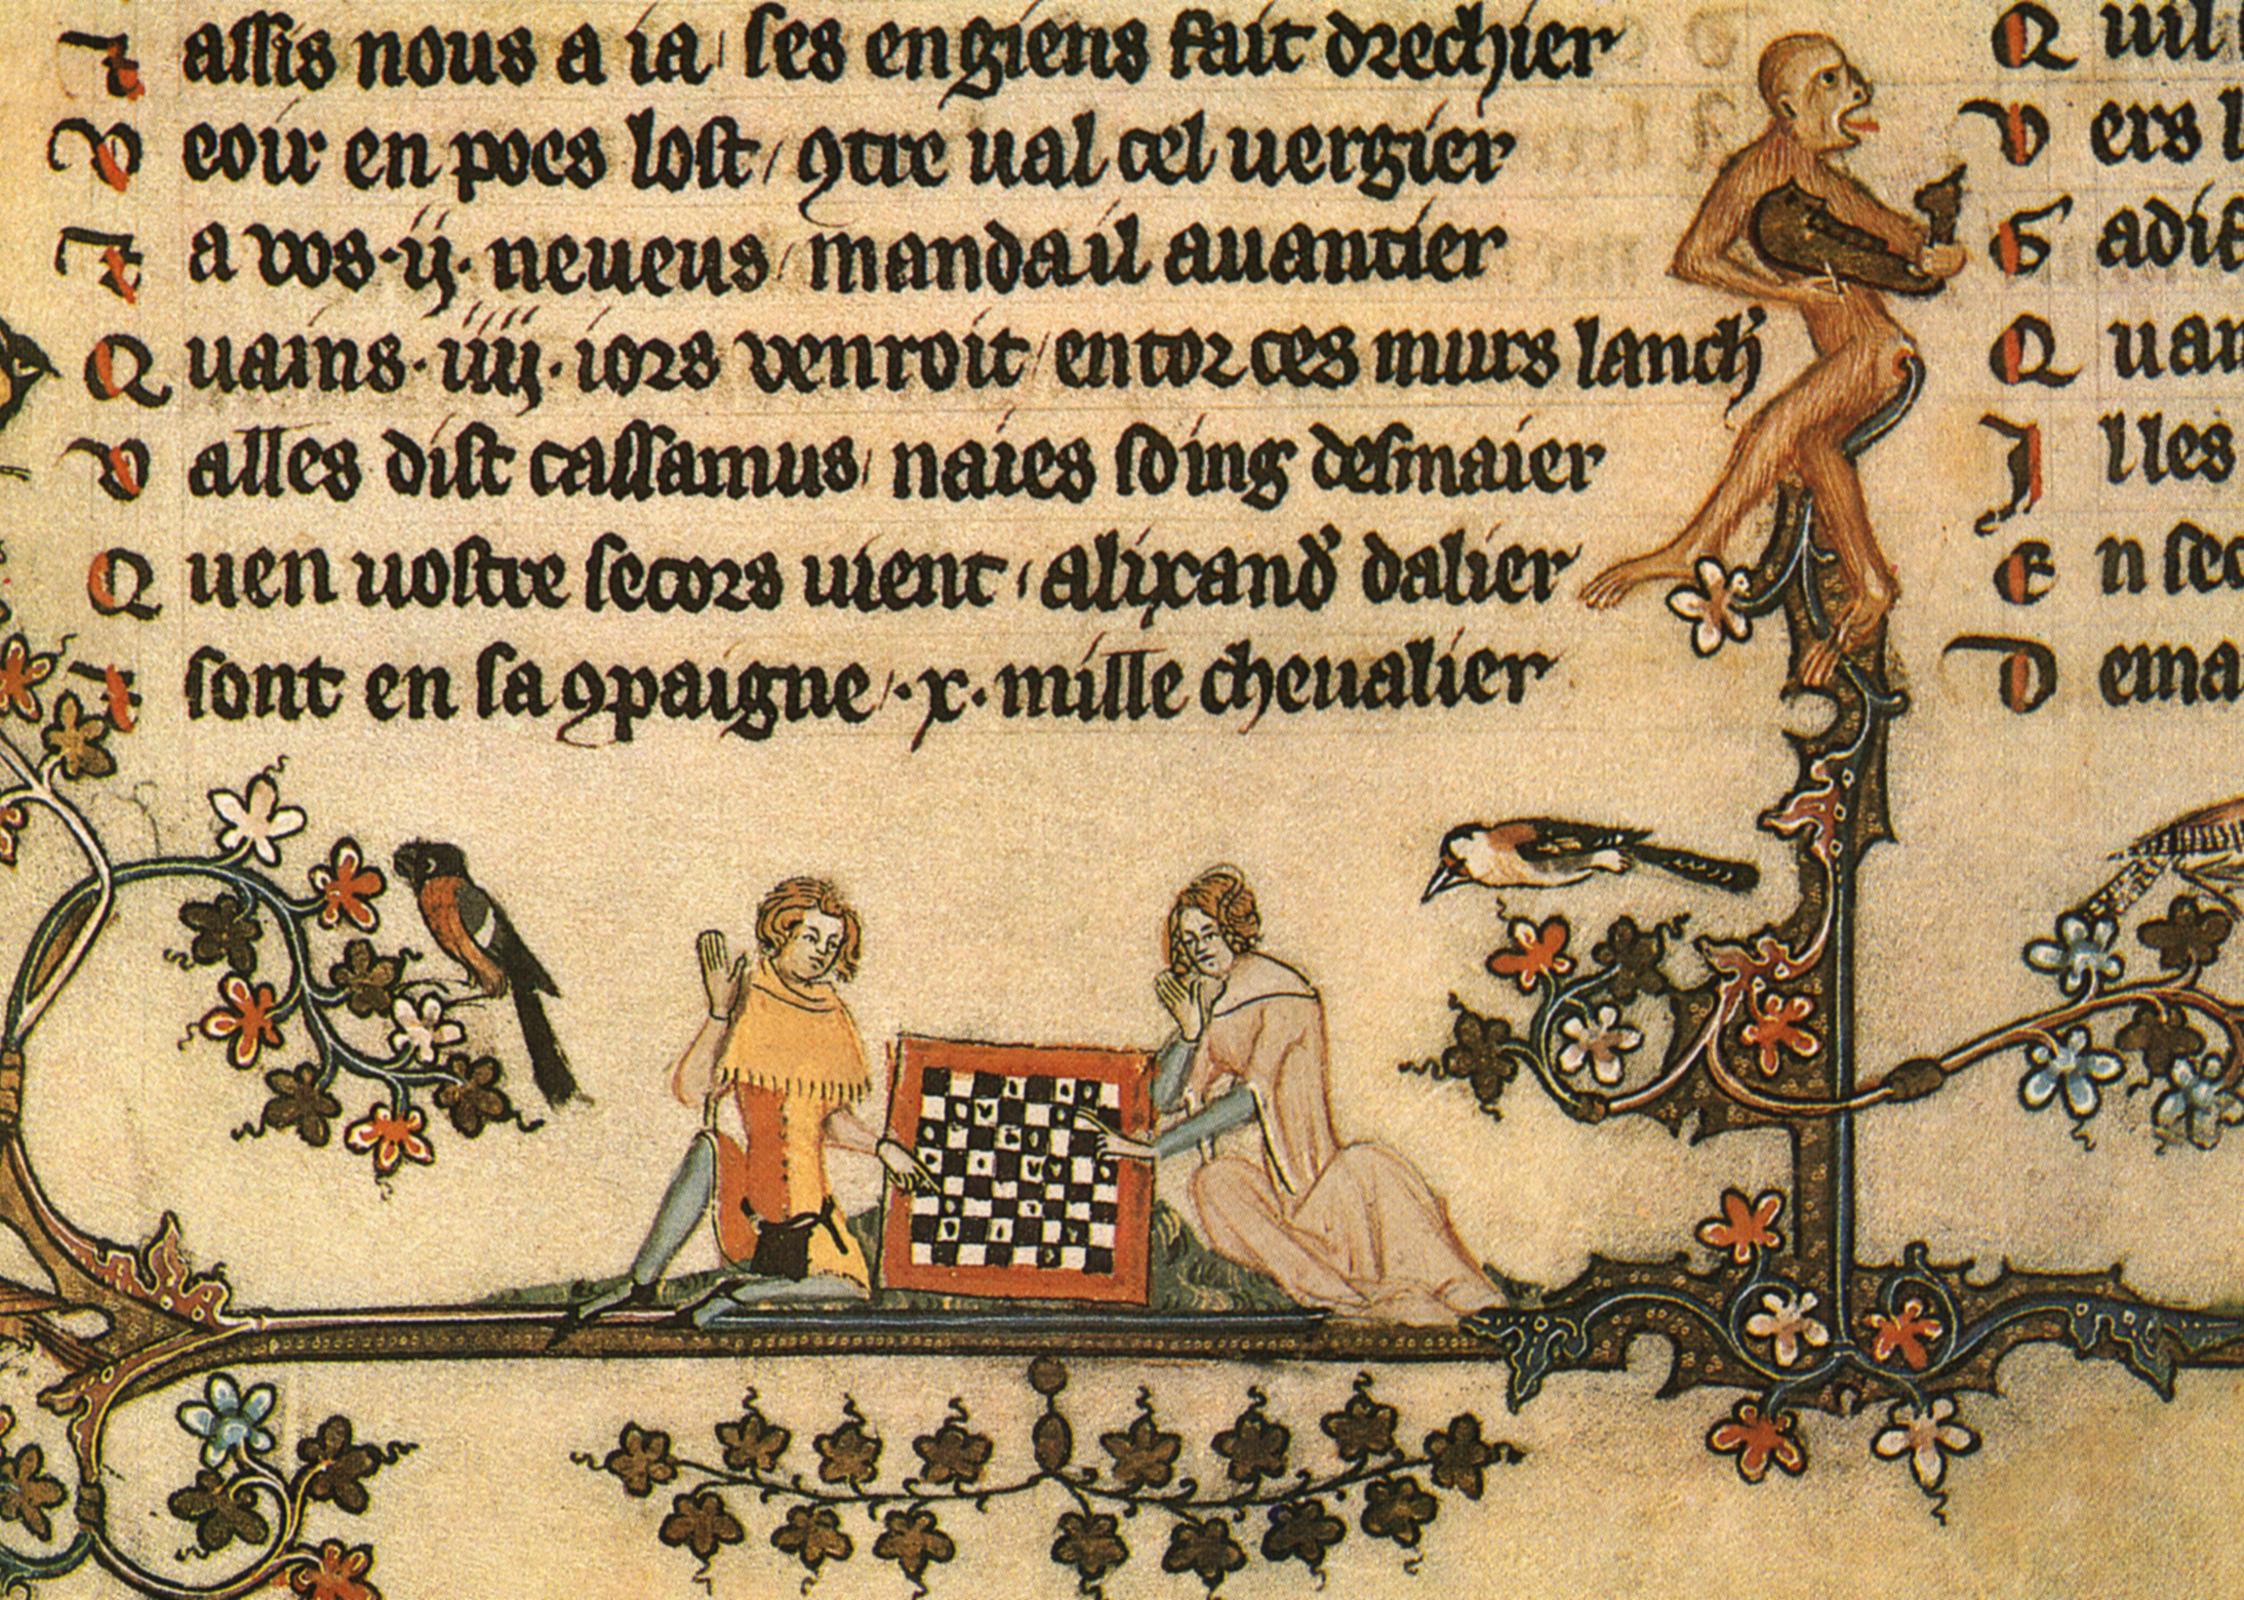 ⁊ assis nous a ia / ses engiens fait drechier
V eoir en poes lost / ꝯtre ual cel uergier
⁊ a vos ·ij· neueus / manda il auantier
Q uains ·iiij· iors venroit / entor ces murs lanch'
V alles dist cassamus / naies soing desmaier
Q uen uostre secors uient / alixand' dalier
⁊ sont en sa ꝯpaigne / ·x· mille cheualier
Q uil
V ers l
G adif
Q uan
J lles
E n sec
D ema